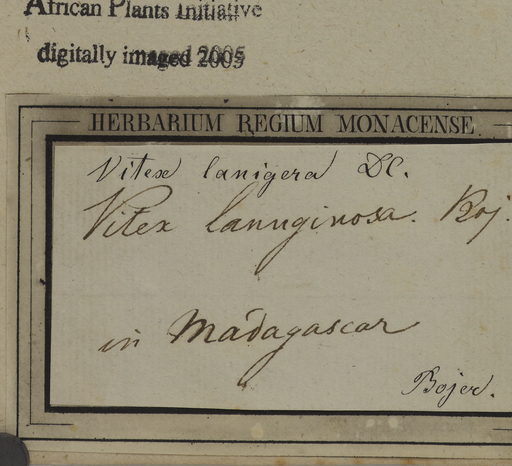 African Plants Initiative
digitally imaged 2005
HERBARIUM REGIUM MONACENSE
Vitex lanigera DC.
Vitex lanuginosa. Boj.
in Madagascar
Bojer.